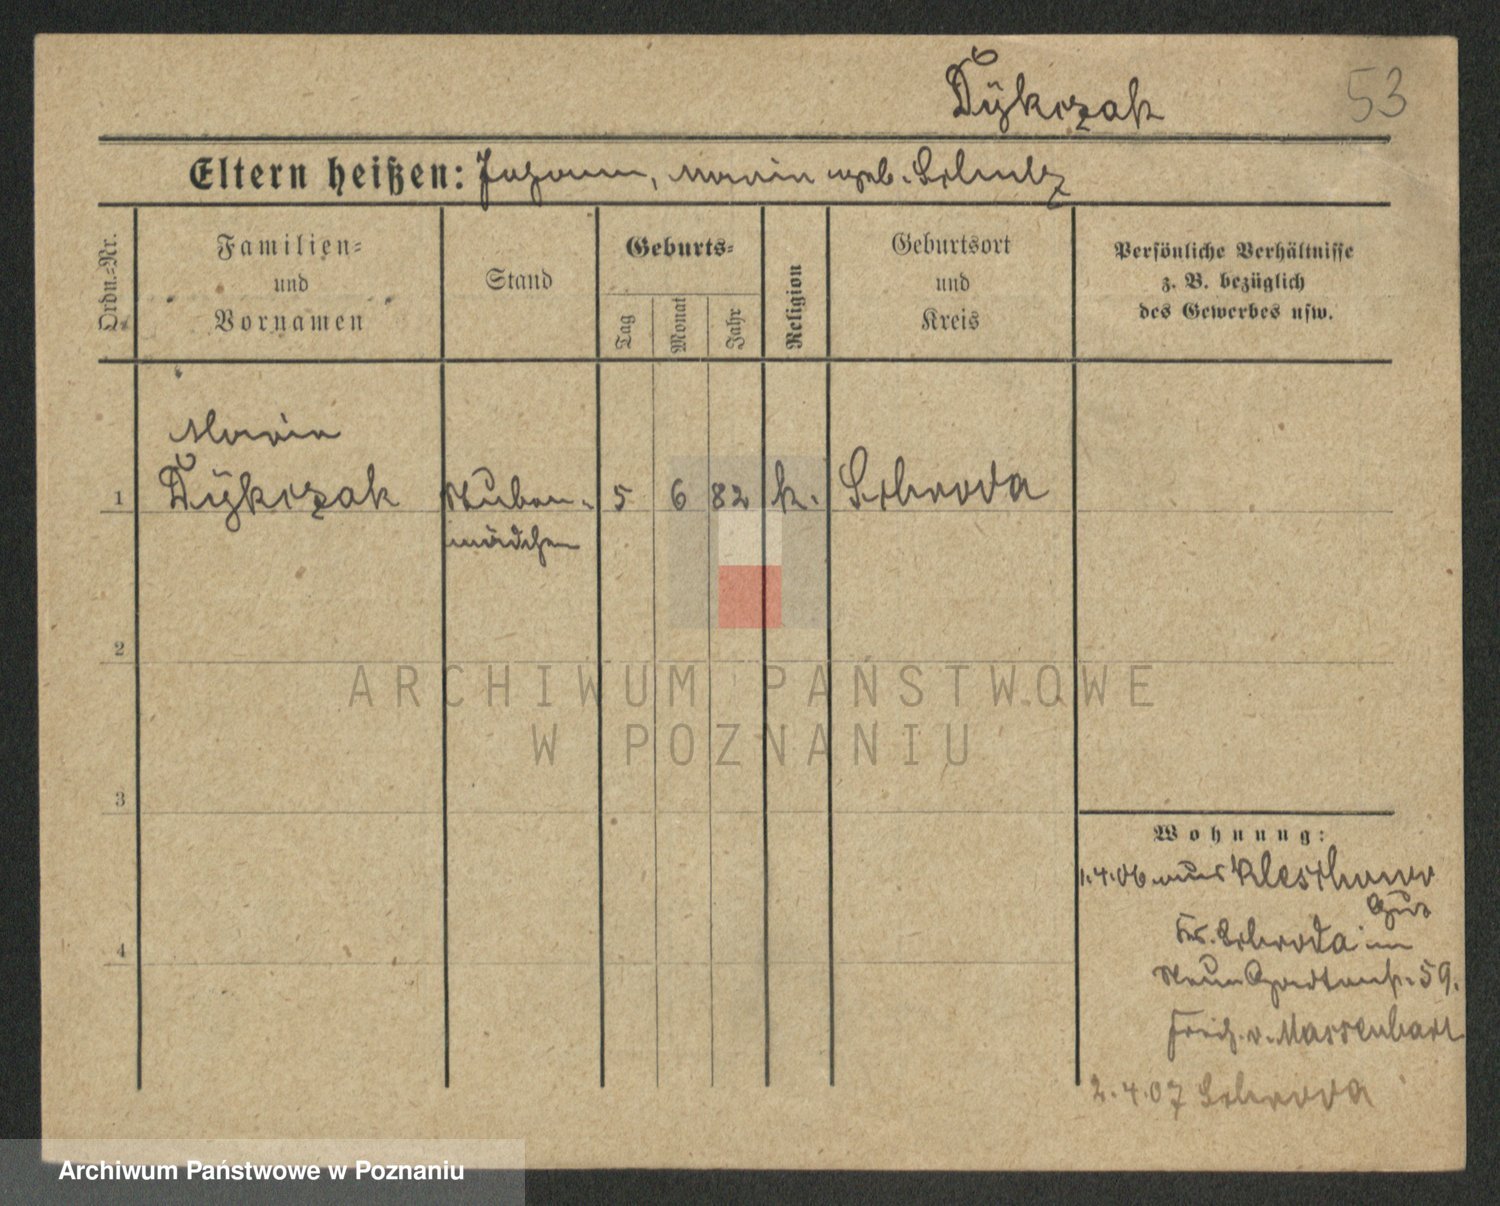 Tÿkczak 53
Eltern heißen: Johann, Maria geb. Schulz
Ordn.-Nr.
Familien-
und
Vornamen
Stand
Geburts-
Tag
Monat
Jahr
Religion
Geburtsort
und
Kreis
Persönliche Verhältnisse
z. B. bezüglich
des Gewerbes usw.
Maria
1 Tÿkczak Stuben- 5 6 82 k. Schroda
mädchen
2
3
4
Wohnung:
1.4.06 aus
Gut
Krs. Schroda in
59.
v. Massenbach
2.4.07 Schroda
ARCHIWUM PAŃSTWOWE
W POZNANIU
Archiwum Państwowe w Poznaniu